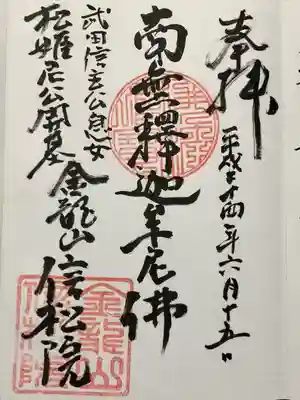 奉拝
平成廿四年六月十五日
南無釋迦牟尼佛
武田信玄公息女
松姫尼公開基
金龍山信松院
金龍山